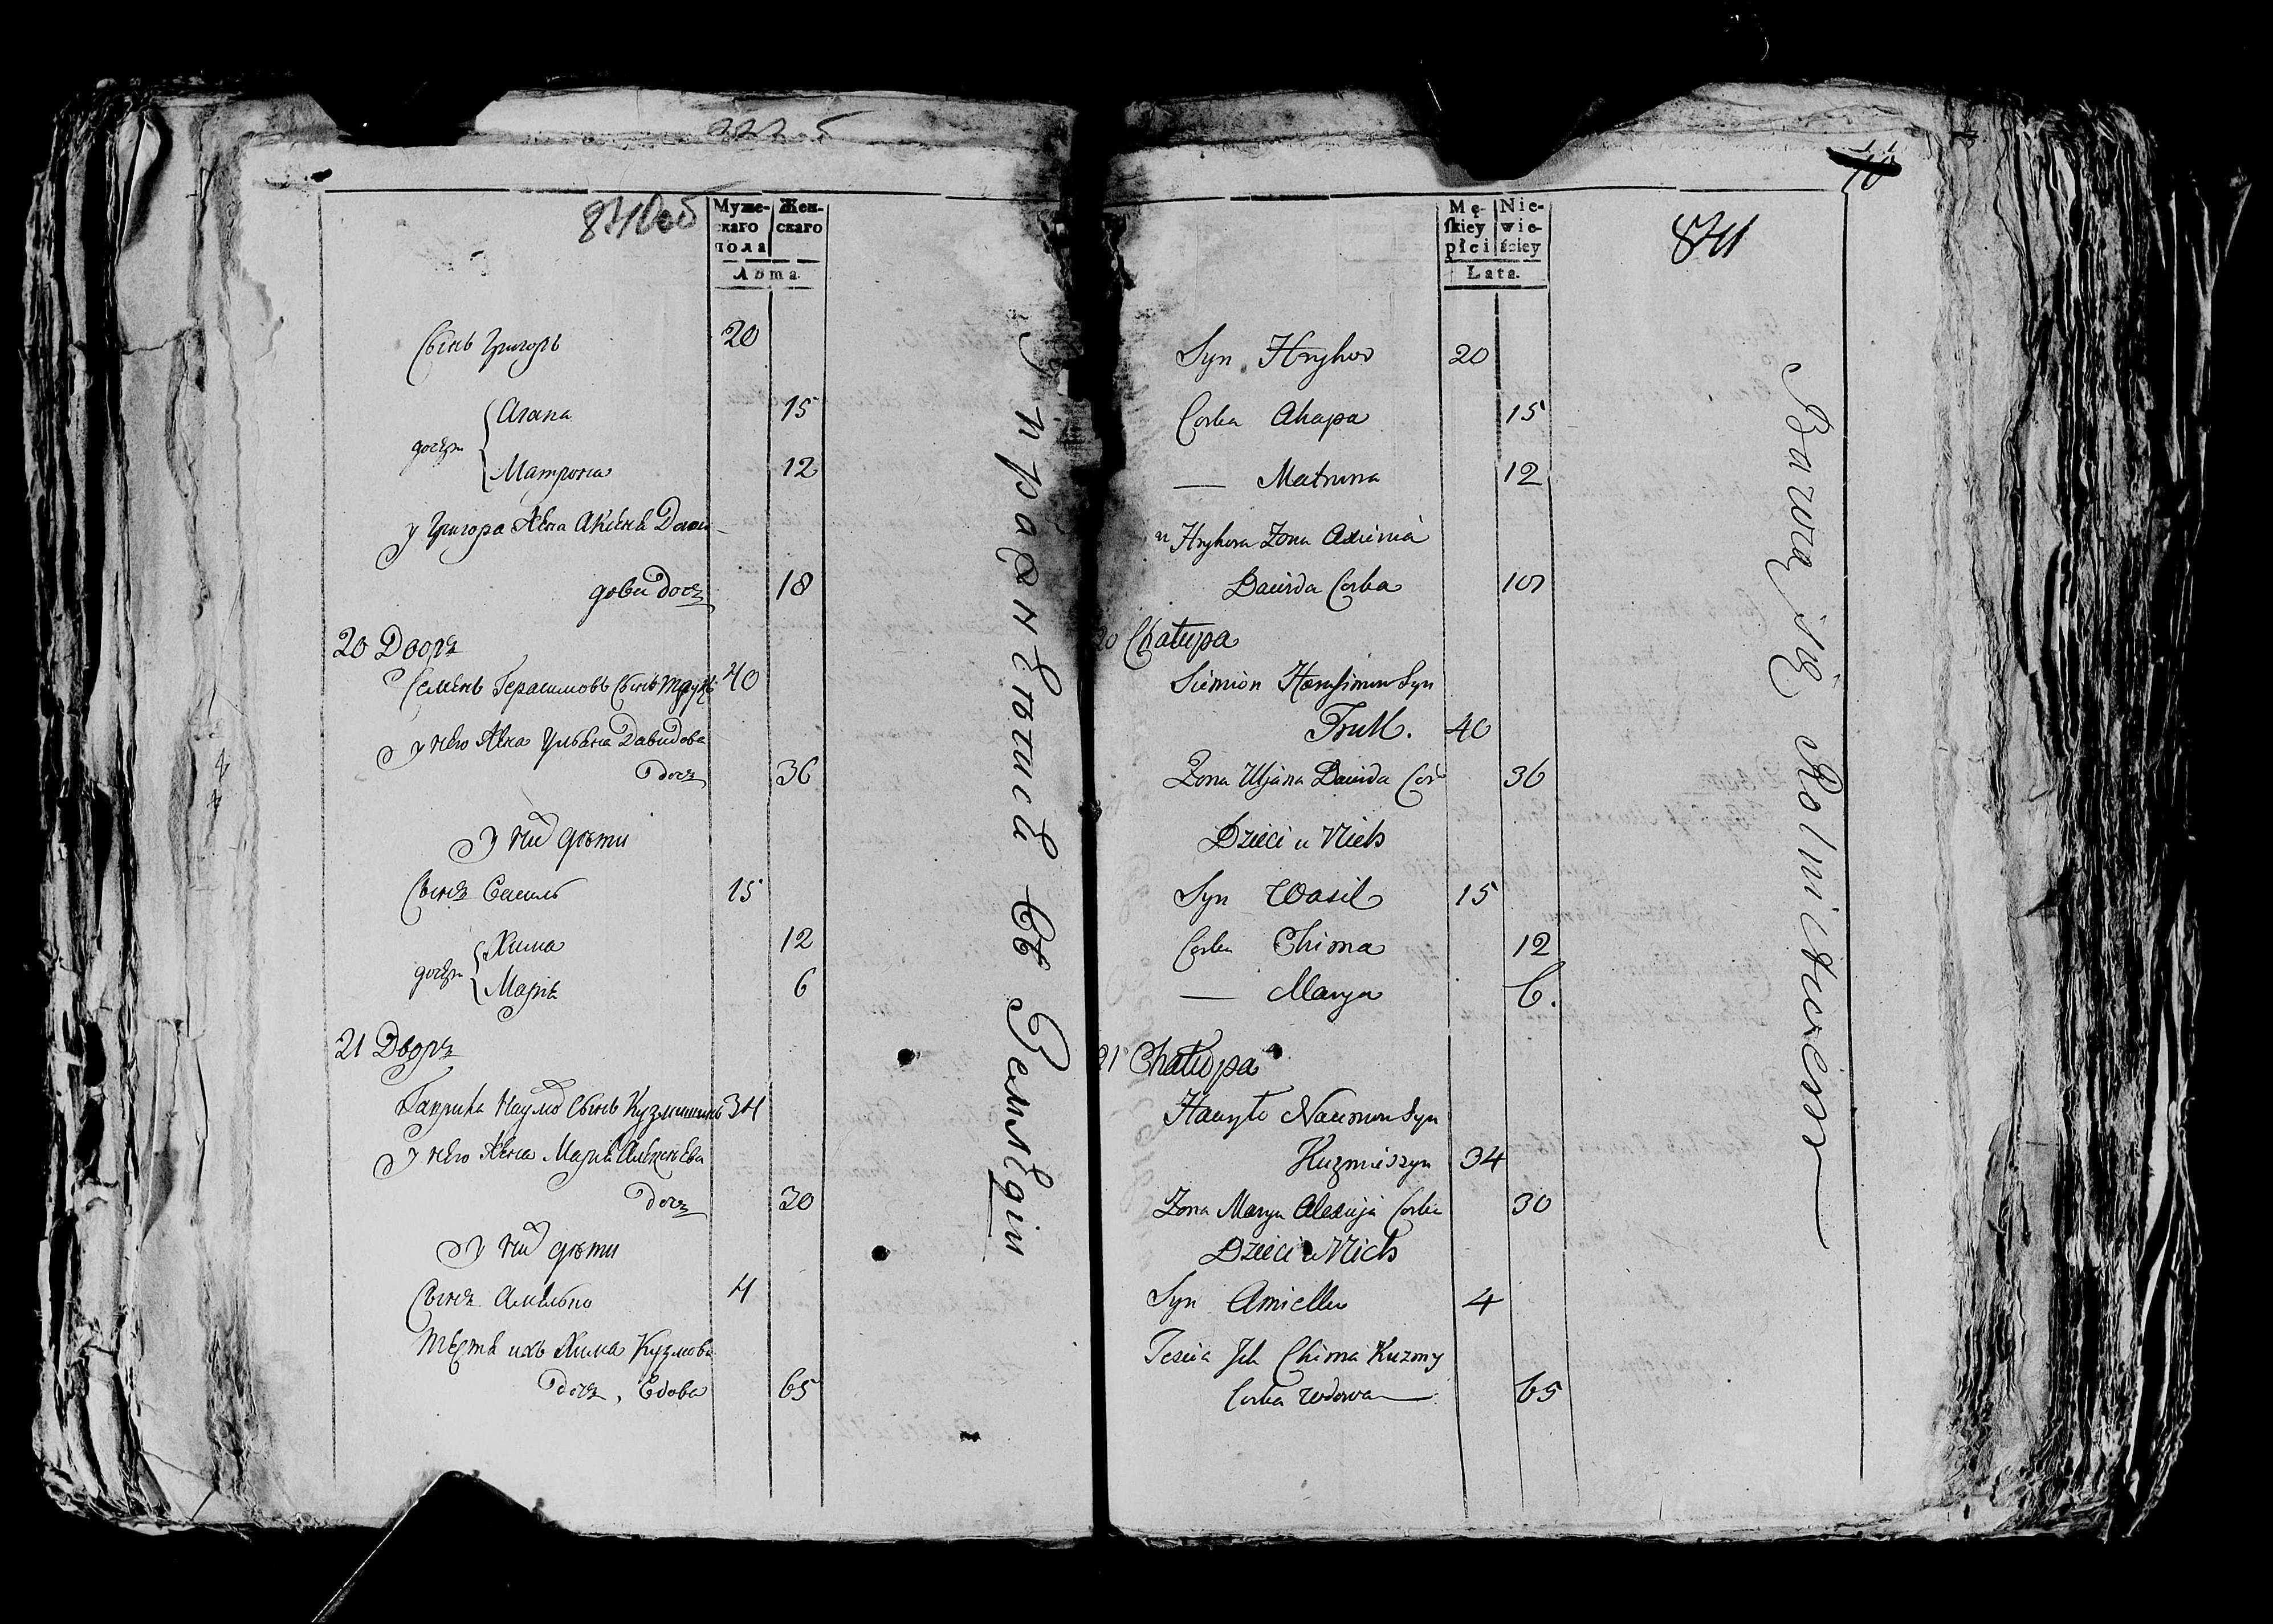 222-5
840об
Муже-
скаго
пола
Жен-
скаго
Лѣта
Сынъ Григоръ 20
дочери
Агапа 15
Матрона 12
у Григора жена Аксеня Дави-
дова дочь 18
20 Дворъ
Семенъ Герасимовъ сынъ 40
у него жена Ульяна Давидова
дочь 36
у них дети
Сынъ Василь 15
дочери
Хима 12
Марія 6
21 Дворъ
Гаврила Наумов сынъ Кузмишинъ 34
у него жена Марія Алексѣева
дочь 30
у них дети
Сынъ 4
теща ихъ Хима Кузмова
дочь, вдова 65
упражнѣются въ Земледіи
10
11
841
Mę-
skiey
płci
Nie-
wie-
ściey
Lata.
Syn Hryhor 20
Corka Ahapa 15
— Matruna 12
u Hryhora Zona Axienia
Dawida Corka 18
20 Chałupa
Siemion Harasimow Syn
40
Zona Uljana Dawida Cor 36
Dzieci u Nich
Syn Wasil 15
Corka Chima 12
— Marya 6.
21 Chałupa
Hawryło Naumow Syn
Kuzmiszyn 34
Zona Marya Alexieja Corka 30
Dzieci u Nich
Syn 4
Teścia Ich Chima Kuzmy
Corka wdowa — 65
Bawią się Rolnictwem —